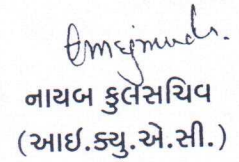 નાયબ કુલસચિવ
(આઈ.ક્યુ.એ.સી.)